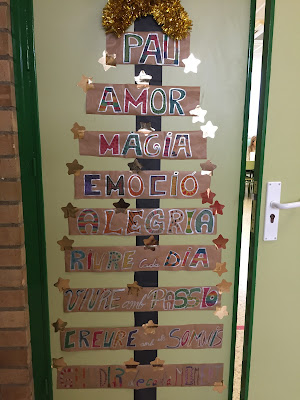 PAU
AMOR
MAGIA
EMOCIÓ
ALEGRIA
RIURE cada DIA
VIURE amb PASSIÓ
CREURE en els SOMNIS
DIR de cada